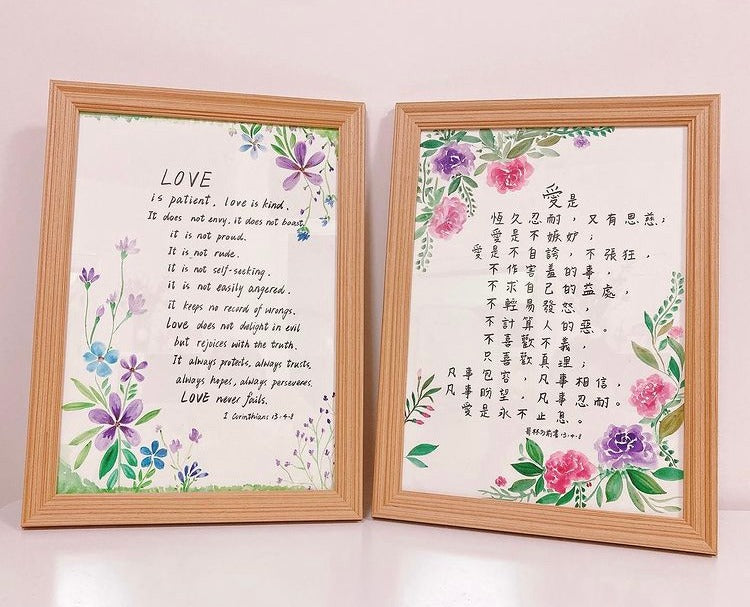 LOVE
is patient, love is kind.
It does not envy, it does not boast,
it is not proud.
It is not rude.
it is not self-seeking.
it is not easily angered.
it keeps no record of wrongs.
Love does not delight in evil
but rejoices with the truth.
It always protects, always trusts,
always hopes, always perseveres.
LOVE never fails.
1 Corinthians 13:4-8
愛是
恆久忍耐，又有恩慈；
愛是不嫉妒；
愛是不自誇，不張狂，
不作害羞的事，
不求自己的益處，
不輕易發怒，
不計算人的惡。
不喜歡不義，
只喜歡真理；
凡事包容，凡事相信，
凡事盼望，凡事忍耐。
愛是永不止息。
哥林多前書13:4-8